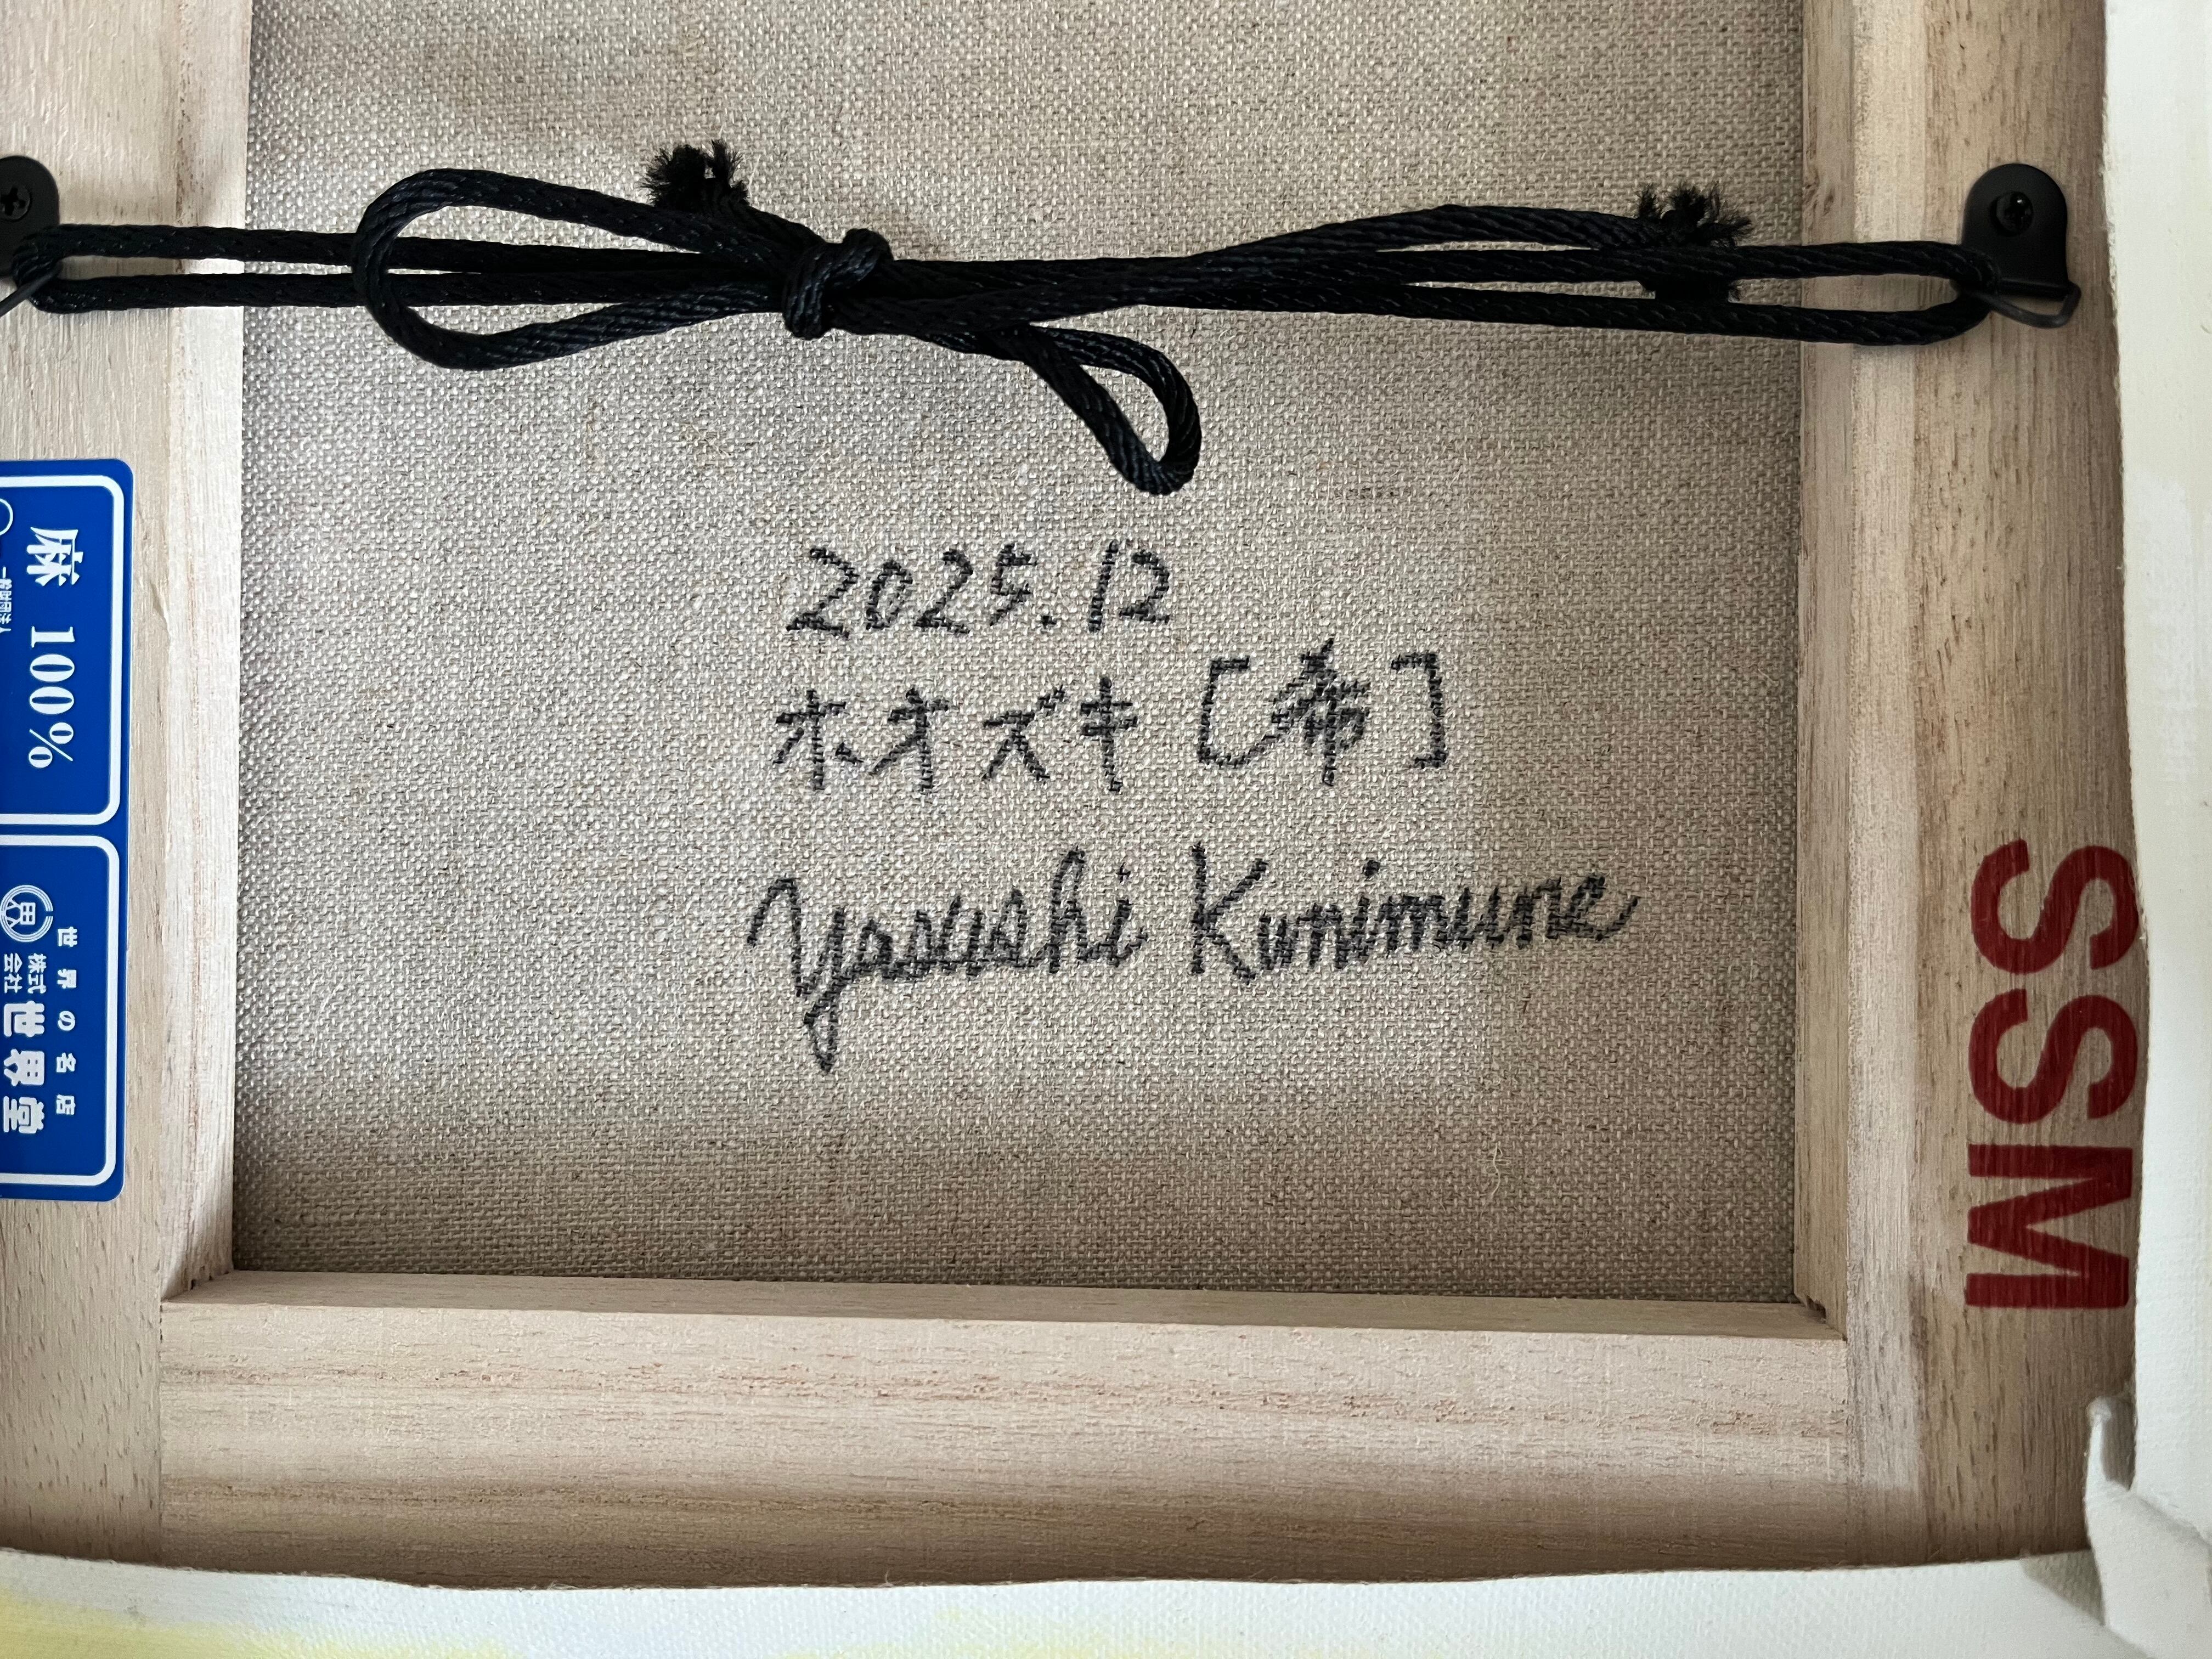 2025.12
ホオズキ [希]
Yasushi Kunimune
麻 100%
世界の名店
株式会社 世界堂
SSM